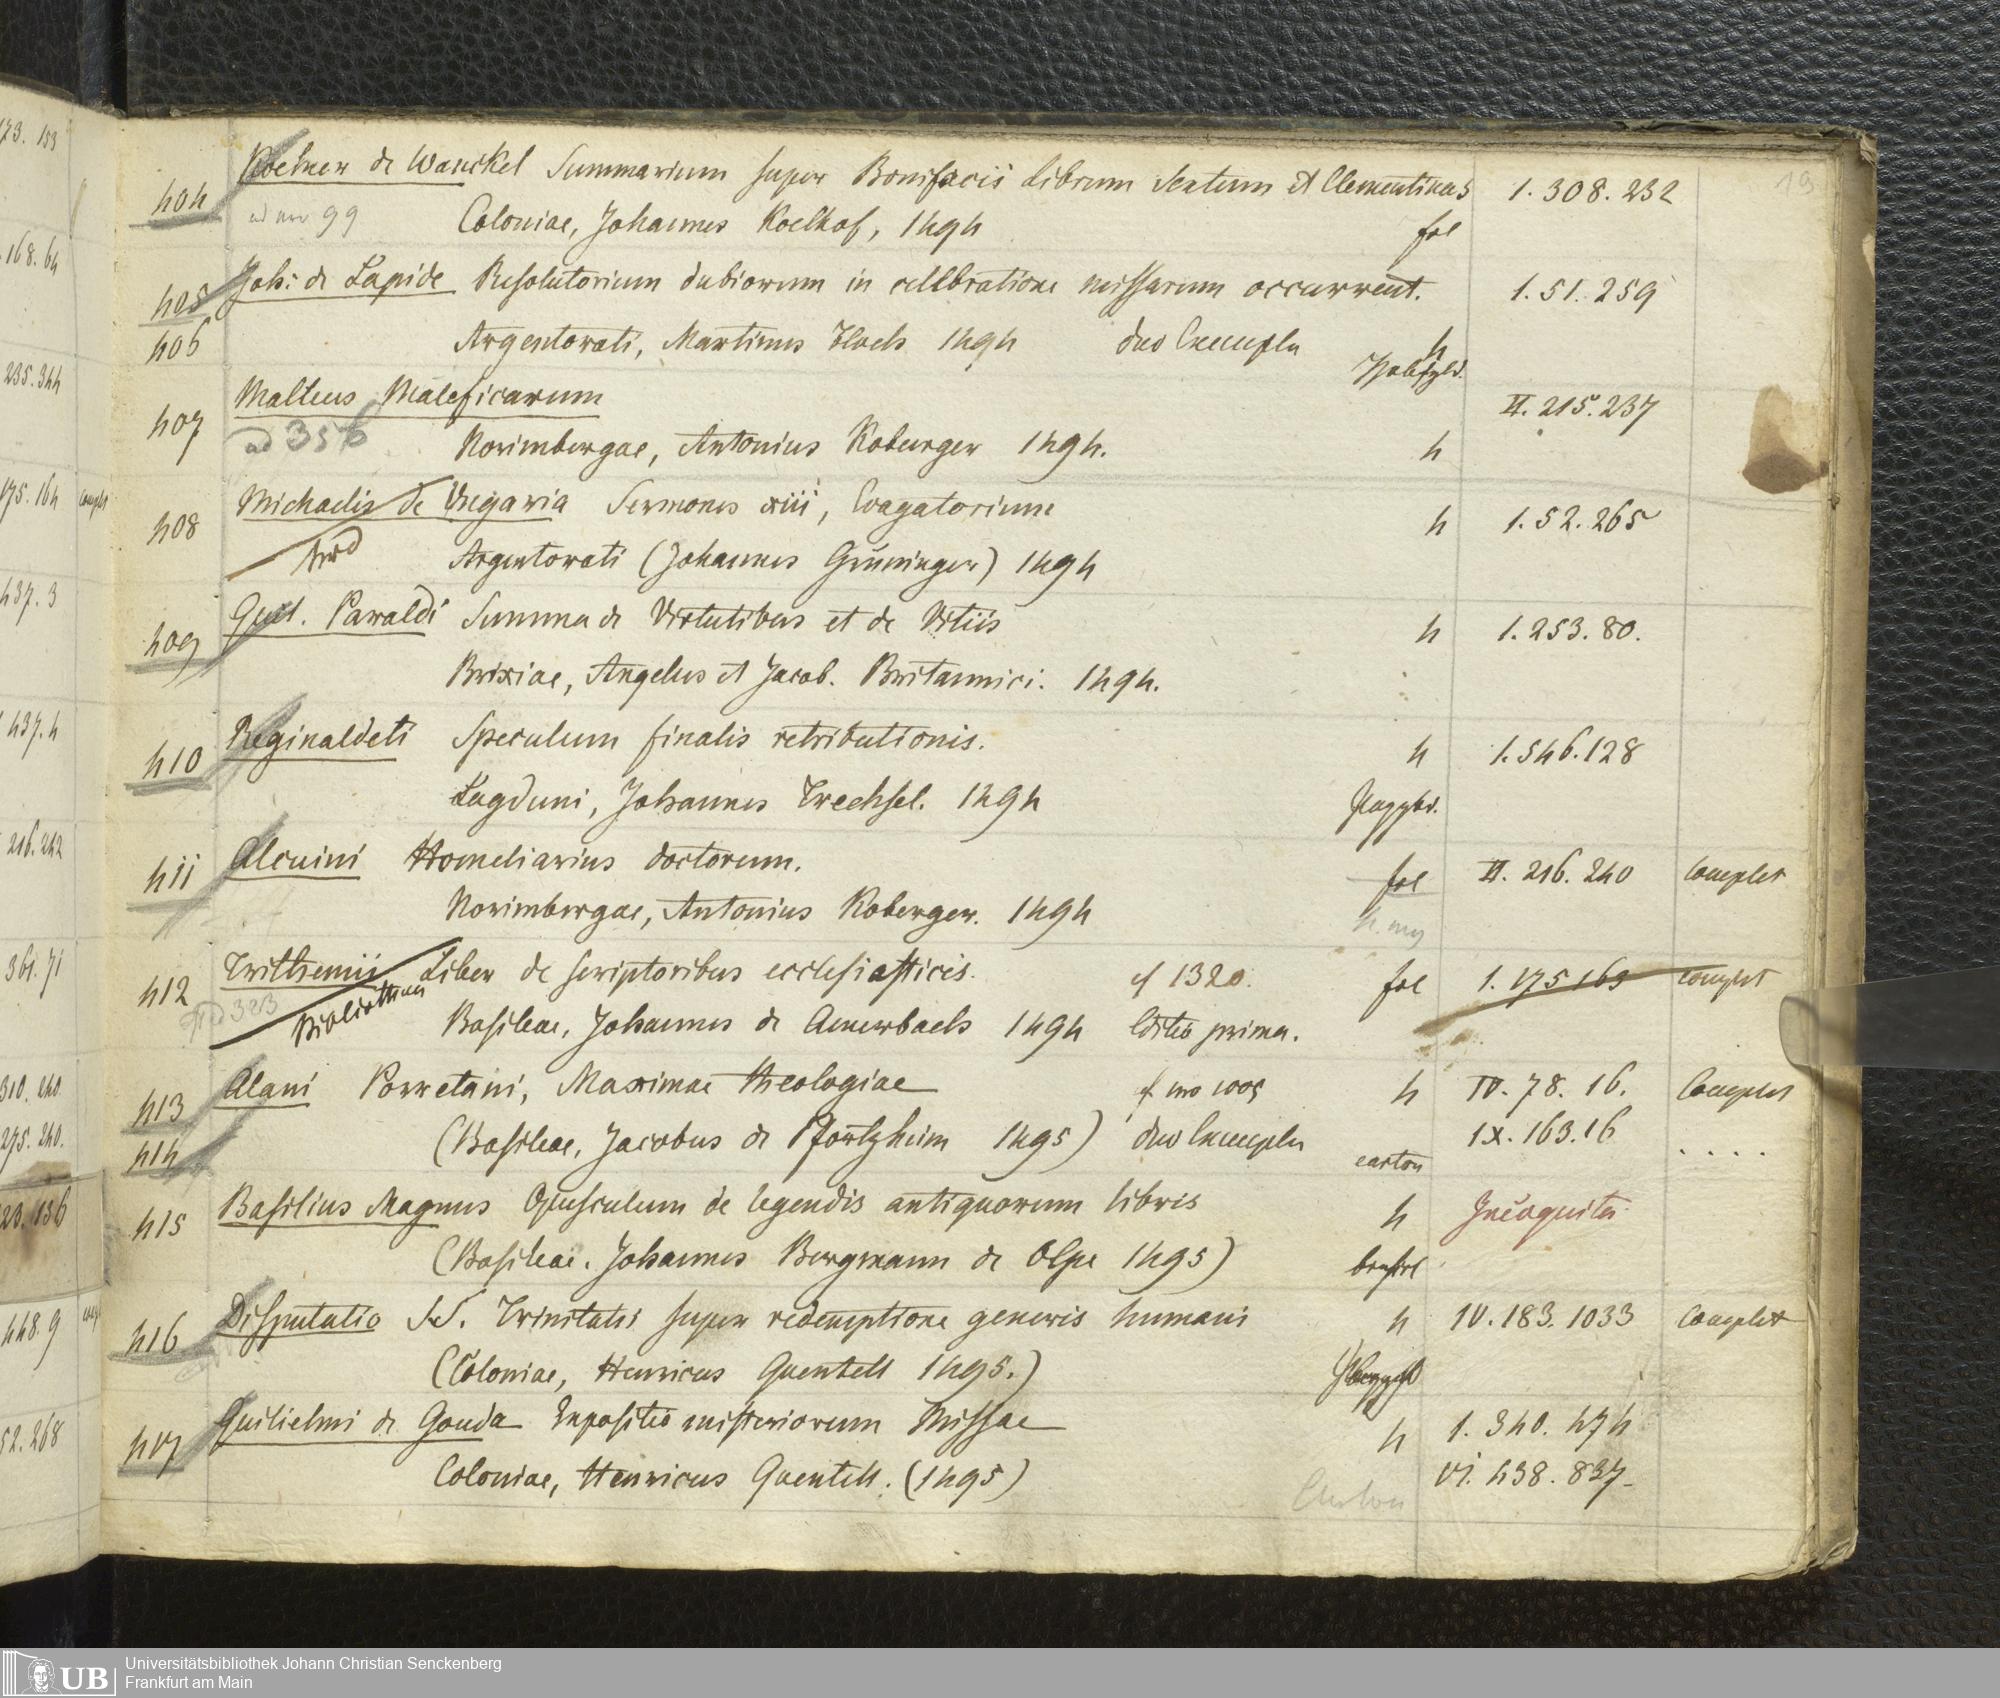 173. 153
19
404 Koelner de Wanckel Summarium super Bonifacii librum Sextum et Clementinas 1. 308. 232
99 Coloniae, Johannes Koelhof, 1494 fol
168. 64
405 Joh: de Lapide Resolutorium dubiorum in celebratione missarum occurrent. 1. 51. 259
406 Argentorati, Martinus Flach 1494 duo Exempla 4
235. 344
407 Malleus Maleficarum II. 215. 237
ad 356 Norimbergae, Antonius Koburger 1494. 4
175. 164 complet
408 Michaelis de Ungaria Sermones xiii, Evagatorium 4 1. 52. 265
Argentorati (Johannes Grüninger) 1494
437. 3
409 Guil. Paraldi Summa de Virtutibus et de Vitiis 4 1. 253. 80.
Brixiae, Angelus et Jacob. Britannici. 1494.
437. 4
410 Reginaldeti Speculum finalis retributionis. 4 1. 546. 128
Lugduni, Johannes Trechsel. 1494
216. 242
411 Alcuini Homeliarius doctorum. fol II. 216. 240 complet
Norimbergae, Antonius Koberger. 1494
361. 71
412 Trithemii Liber de scriptoribus ecclesiasticis. cf 1320. fol 1. 175 169 complet
323 Bibliotheca Basileae, Johannes de Amerbach 1494 Editio prima.
310. 240
413 Alani Porretani, Maximae theologiae cf nro 1005 4 IV. 78. 16. Complet
275. 240.
414 (Basileae, Jacobus de Pfortzheim 1495) duo Exempla carton IX. 163. 16 . . . .
23. 136
415 Basilius Magnus Opusculum de legendis antiquorum libris 4 Incognita
(Basileae. Johannes Bergmann de Olpe 1495)
448. 9
416 Disputatio S.S. Trinitatis super redemptione generis humani 4 IV. 183. 1033 Complet
(Coloniae, Henricus Quentell 1495.)
52. 268
417 Guilielmi de Gouda Expositio misteriorum Missae 4 1. 340. 474
Coloniae, Henricus Quentell. (1495) Carton VI. 438. 837.
UB
Universitätsbibliothek Johann Christian Senckenberg
Frankfurt am Main